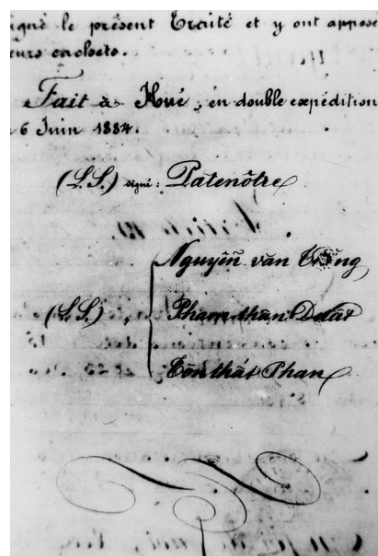 signé le présent Traité et y ont apposé
leurs cachets.
Fait à Hué, en double expédition
6 Juin 1884.
(L.S.) signé: Patenôtre
Nguyễn văn
(L.S.) Pham than Duat
Tôn thất Phan